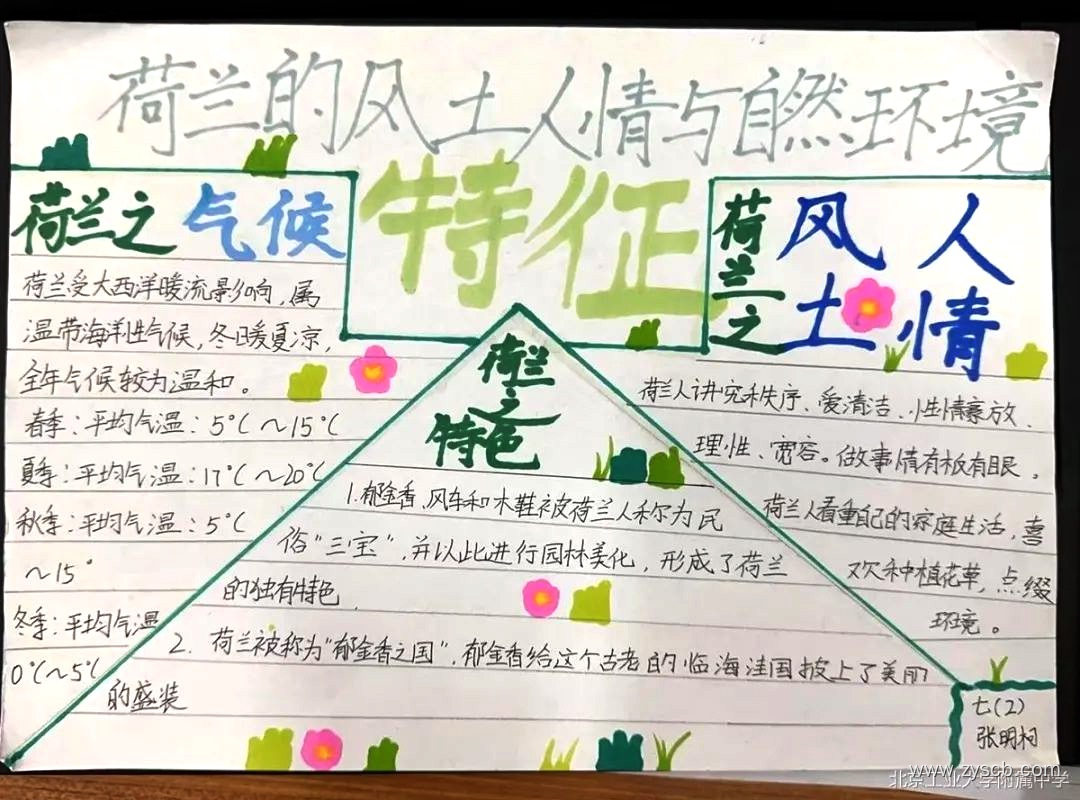 荷兰的风土人情与自然环境
特征
荷兰之气候
荷兰受大西洋暖流影响，属
温带海洋性气候，冬暖夏凉，
全年气候较为温和。
春季：平均气温：5℃～15℃
夏季：平均气温：17℃～20℃
秋季：平均气温：5℃
～15°
冬季：平均气温
0℃～5℃
荷兰
之
特色
1.郁金香、风车和木鞋被荷兰人称为民
俗“三宝”，并以此进行园林美化，形成了荷兰
的独有特色
2. 荷兰被称为“郁金香之国”，郁金香给这个古老的临海洼国披上了美丽
的盛装
荷兰之
风人
土情
荷兰人讲究秩序、爱清洁、性情豪放、
理性、宽容。做事情有板有眼。
荷兰人看重自己的家庭生活，喜
欢种植花草，点缀
环境。
七(2)
张明柯
www.zyscb.com
北京工业大学附属中学